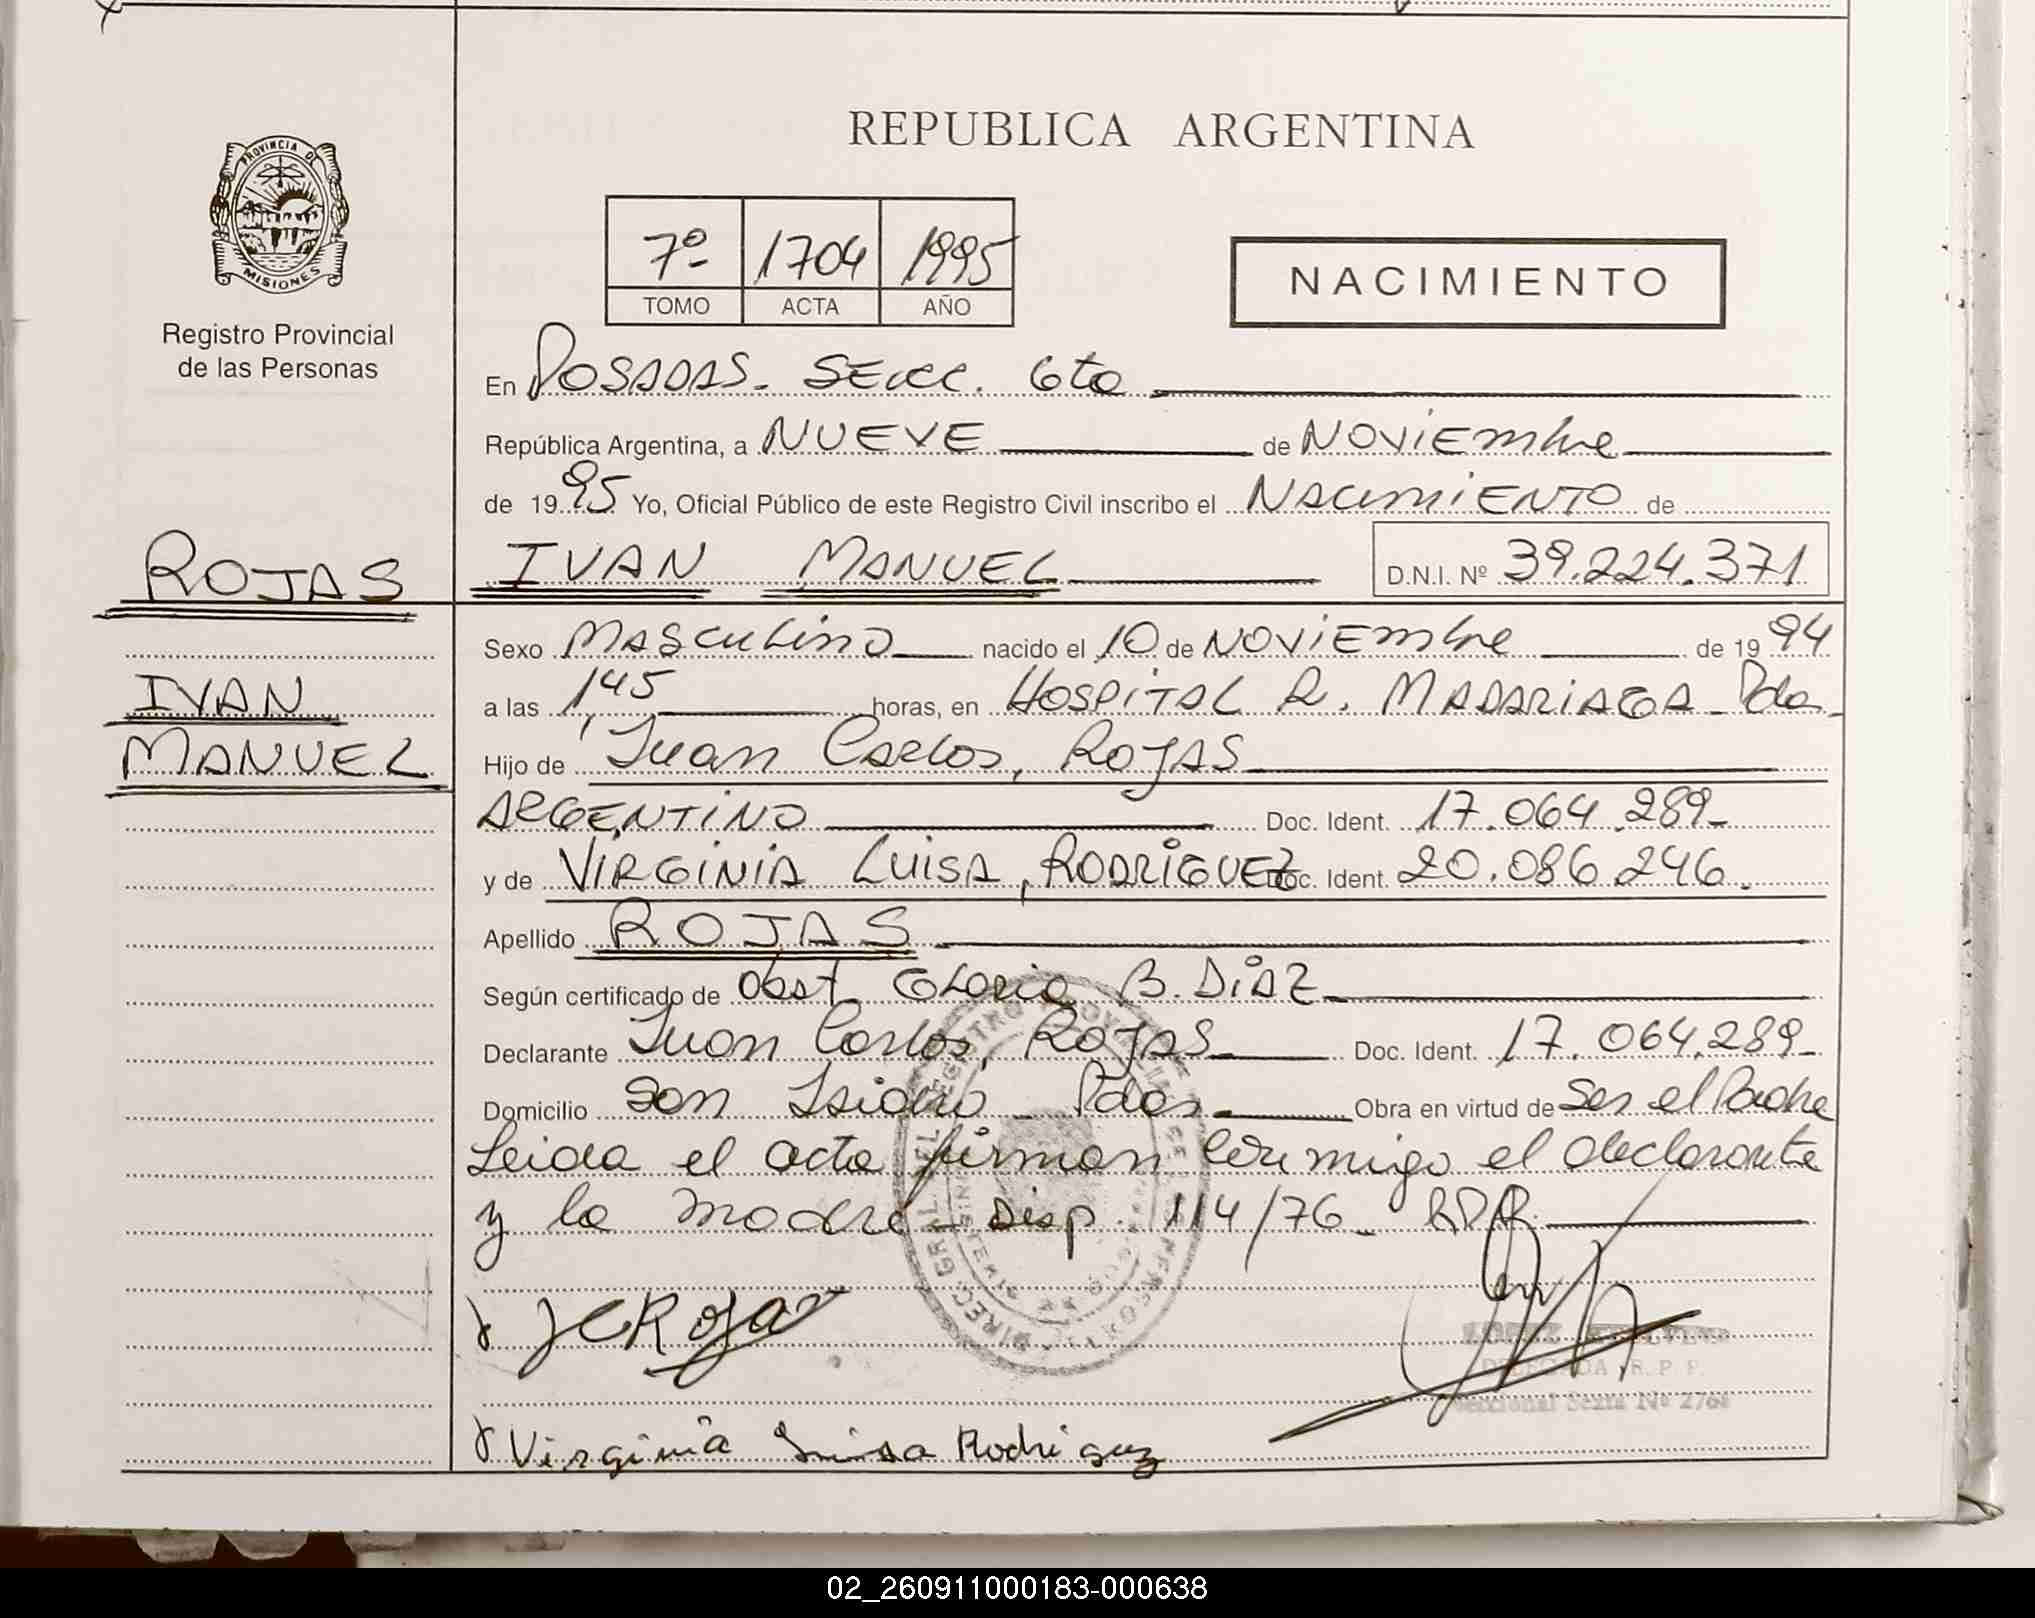 REPUBLICA ARGENTINA
PROVINCIA DE
MISIONES
Registro Provincial
de las Personas
7º 1704 1995
TOMO ACTA AÑO
NACIMIENTO
En POSADAS. SECC. 6ta
República Argentina, a NUEVE de NOVIEMbre
de 1995 Yo, Oficial Público de este Registro Civil inscribo el NACIMIENTO de
ROJAS
IVAN MANUEL D.N.I. Nº 39.224.371
Sexo MASCULINO nacido el 10 de NOVIEMbre de 1994
IVAN
a las 1,45 horas, en HOSPITAL R. MADARIAGA - Pdas -
MANUEL
Hijo de Juan Carlos, ROJAS
ARGENTINO Doc. Ident. 17.064.289-
y de VIRGINIA LUISA, RODRIGUEZ Doc. Ident. 20.086.246.
Apellido ROJAS
Según certificado de Obst. GLORIA B. DIAZ
Declarante Juan Carlos, ROJAS Doc. Ident. 17.064.289-
Domicilio San Isidro - Pdas - Obra en virtud de Ser el Padre
Leida el acta firman conmigo el declarante
y la madre - Disp. 114/76 - RPP.
JCRojas
DELEGADA R. P. P.
Seccional Sexta Nº 2768
Virginia Luisa Rodriguez
02_260911000183-000638